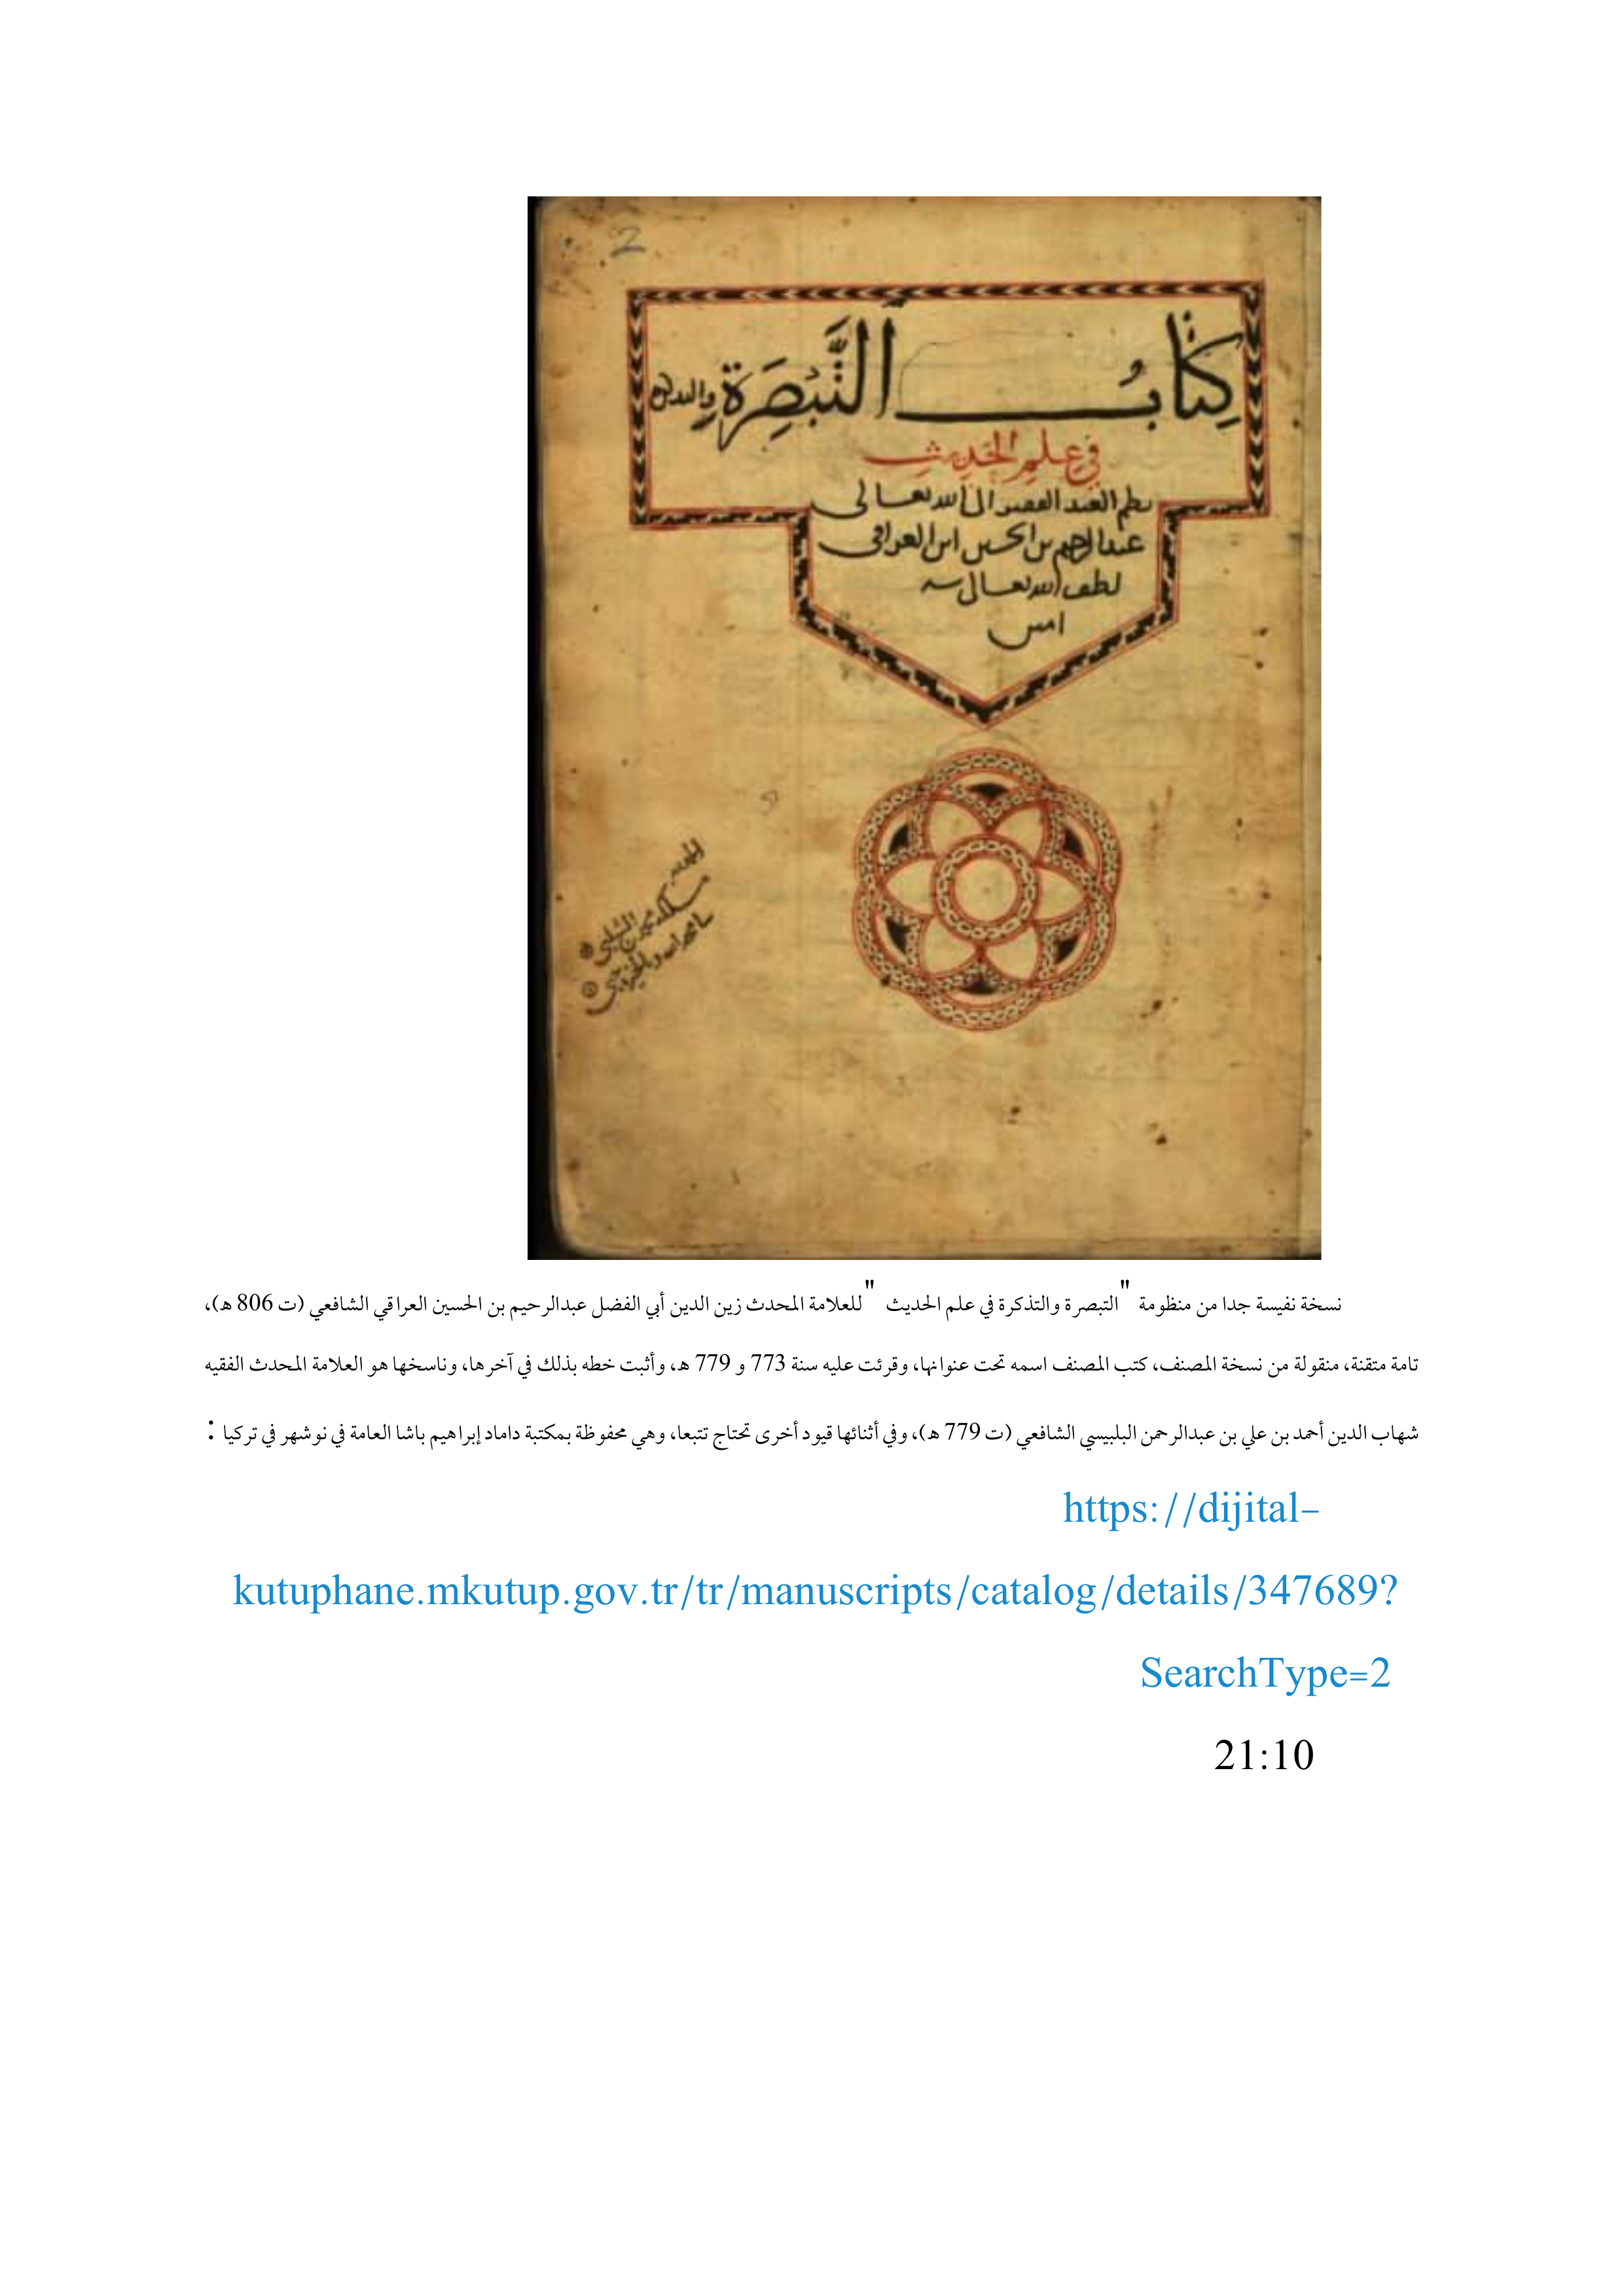 2
كتابُ التَّبْصِرَة والتذكرة
في علم الحديث
نظم العبد الفقير الى الله تعالى
عبد الرحيم بن الحسين ابن العراقي
لطف الله تعالى به
امين
الحمد لله
نسخة نفيسة جدا من منظومة "التبصرة والتذكرة في علم الحديث" للعلامة المحدث زين الدين أبي الفضل عبدالرحيم بن الحسين العراقي الشافعي (ت 806 هـ)،
تامة متقنة، منقولة من نسخة المصنف، كتب المصنف اسمه تحت عنوانها، وقرئت عليه سنة 773 و 779 هـ، وأثبت خطه بذلك في آخرها، وناسخها هو العلامة المحدث الفقيه
شهاب الدين أحمد بن علي بن عبدالرحمن البلبيسي الشافعي (ت 779 هـ)، وفي أثنائها قيود أخرى تحتاج تتبعا، وهي محفوظة بمكتبة داماد إبراهيم باشا العامة في نوشهر في تركيا :
https://dijital-
kutuphane.mkutup.gov.tr/tr/manuscripts/catalog/details/347689?
SearchType=2
21:10